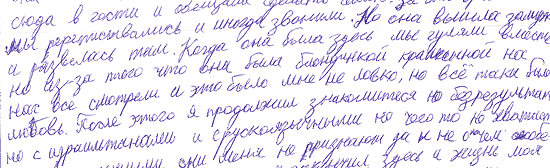 сюда в гости и обещала сделать
мы переписывались и иногда звонили. Но она вышла замуж
и развелась там. Когда она была здесь мы гуляли вместе
но из-за того что она была блондинкой красивой на
нас все смотрели и это было мне не ловко, но всё таки было
любовь. После этого я продолжил знакомится но безрезультат
но с израильтянами и с рускоязычными но чего то не хватает
они меня не признают да и не о чем особе
здесь и жизнь моя